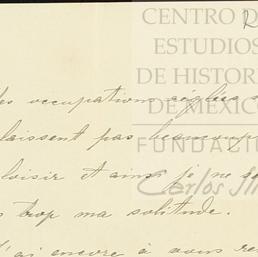 CENTRO D
ESTUDIOS
DE HISTOR
DE MÉXICO
FUNDACIÓ
Carlos Sl
les occupations réglées
laissent pas beaucoup
loisir et ainsi je ne
trop ma solitude.
J'ai encore à vous re